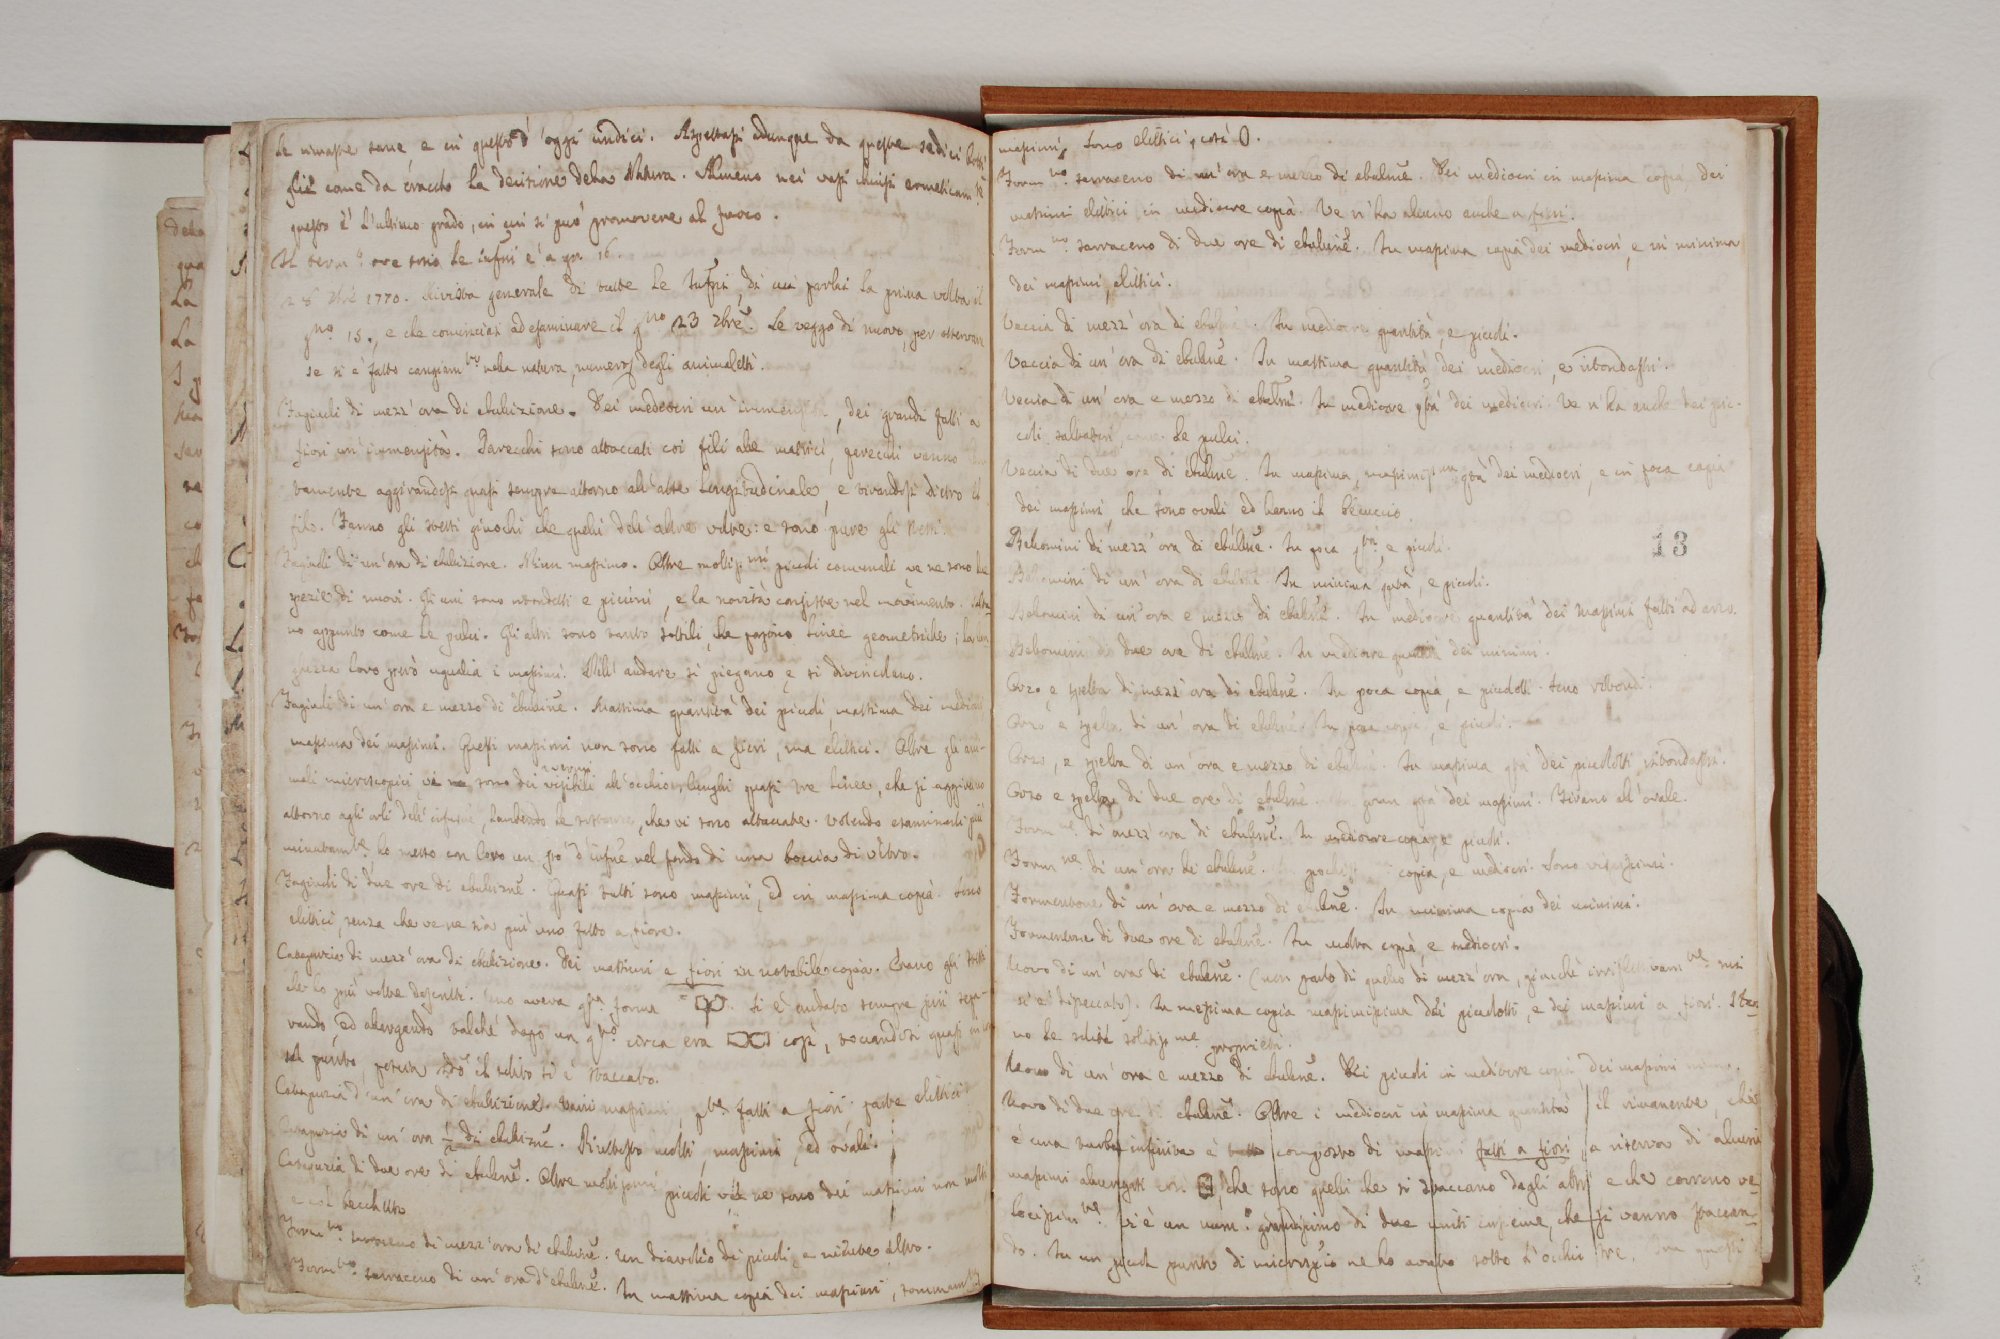 le rimaste sane, e in questo d'oggi undici. Aspettasi adunque da queste sedici
come da oracolo la decisione della Natura. Almeno nei vasi chiusi ermeticam.te
questo è l'ultimo grado, in cui si può promovere al fuoco.
Il term.o ove sono le infus.i è a gr. 16.
1770. Rivista generale di tutte le Infusi, di cui parlai la prima volta il
g.no 15., e che cominciai ad esaminare il g.no 23 7bre. Le veggo di nuovo, per osservare
se si è fatto cangiam.to nella natura, numero degli animaletti.
Fagiuoli di mezz'ora di ebulizione. Dei mediocri un'immensità, dei grandi fatti a
fiori un'immensità. Parecchi sono attaccati coi fili alle
aggirandosi quasi sempre attorno all'asse longitudinale, e tirandosi dietro il
filo. Fanno gli stessi giuochi che quelli dell'altre volte: e sono pure gli stessi.
Fagiuoli di un'ora di ebulizione. Niun massimo. Oltre moltiss.mi piccoli comunali ve ne sono due
spezie di nuovi. Gli uni sono ritondetti e piccini, e la novità consiste nel movimento.
no appunto come le pulci. Gli altri sono tanto sottili, che pajono linee geometriche; la lun
ghezza loro però uguaglia i massimi. Nell'andare si piegano e si divincolano.
Fagiuoli di un'ora e mezzo di ebuline. Massima quantità dei piccoli, massima dei mediocri
massima dei massimi. Questi massimi non sono fatti a fiori, ma elittici. Oltre gli ani-
mali microscopici ve ne sono dei vermi visibili all'occhio, lunghi quasi tre linee, che si aggirano
attorno agli orli dell'infusne, lambendo le sostanze, che vi sono attaccate. Volendo esaminarli più
minutam.te ho messo con loro un po' d'infusne nel fondo di una boccia di vetro.
Fagiuoli di due ore di ebulizne. Quasi tutti sono massimi, ed in massima copia. Sono
elittici, senza che ve ne sia più uno fatto a fiore.
Cataputia di mezz'ora di ebulizione. Dei massimi a fiori in notabile copia. Erano gli stessi
che ho più volte descritti. Uno aveva q.sta forma. Si è andato sempre più sepa-
rando, ed alungando talché dopo un q.to circa era così, toccandosi quasi in un
sol punto, persin tanto il tutto si è staccato.
Cataputia d'un'ora di ebulizione. Varii massimi, p.te fatti a fiori parte elittici
Cataputia di un'ora 1/2 di ebulizne. Piuttosto molti, massimi, ed ovali.
Cataputia di due ore di ebuline. Oltre moltissimi piccoli ve ne sono dei massimi non molti
e col becchetto
Form.to sarraceno di mezz'ora di ebuline. Un diavolio di piccoli, e niente altro.
Form.to sarraceno di un'ora d'ebuline. In massima copia dei massimi,
massimi. Sono elittici, così 0.
Form.to sarraceno di un'ora e mezzo di ebuline. Dei mediocri in massima copia, dei
massimi elittici in mediocre copia. Ve n'ha alcuno anche a fiori.
Form.to sarraceno di due ore di ebuline. In massima copia dei mediocri, e in minima
dei massimi, elittici.
Veccia di mezz'ora di ebuline. In mediocre quantità, e piccoli.
Veccia di un'ora di ebuline. In massima quantità dei mediocri, e ritondastri.
Veccia di un'ora e mezzo di ebuline. In mediocre q.tà dei mediocri. Ve n'ha anche dei pic-
coli saltatori, come le pulci.
Veccia di due ore di ebuline. In massima, massimiss.ma q.tà dei mediocri, e in poca copia
dei massimi, che sono ovali ed hanno il beccuccio
Belomini di mezz'ora di ebuline. In poca q.tà e piccoli.
13
Belomini di un'ora di ebuline. In minima q.tà, e piccoli.
Belomini di un'ora e mezzo di ebuline. In mediocre quantità dei massimi fatti ad
Belomini di due ore di ebuline. In mediocre quantità dei minimi.
Orzo, e spelta di mezz'ora di ebuline. In poca copia, e piccoletti. Sono ritondi.
Orzo e spelta di un'ora di ebuline. In poca copia, e piccoli.
Orzo, e spelta di un'ora e mezzo di ebuline. In massima q.tà dei piccoletti ritondastri.
Orzo e spelta di due ore di ebuline. In gran q.tà dei massimi. Tirano all'ovale.
Form.ne di mezz'ora di ebuline. In mediocre copia, e piccoli.
Form.ne di un'ora di ebuline. copia, e mediocri. Sono
Formentone di un'ora e mezzo di ebuline. In minima copia dei minimi.
Formentone di due ore di ebuline. In molta copia, e mediocri.
Novo di un'ora di ebuline. (non parlo di quello di mezz'ora, giacché irriflettivam.te
si è disseccato). In massima copia massimissima dei piccoletti, e dei massimi a fiori.
no le solite propriet.
Novo di un'ora e mezzo di ebuline. Dei piccoli in mediocre copia dei massimi
Novo di due ore di ebuline. Oltre i mediocri in massima quantità il rimanente, che
è una turba infinita è composto di massimi fatti a fiori a riserva di alcuni
massimi alungati così, che sono quelli che si staccano dagli altri e che corrono ve-
locissim.te. V'è un num.o grandissimo di due uniti insieme, che si vanno staccan-
do. In un piccol punto di microscopio ne ho avuto sotto l'occhio tre.